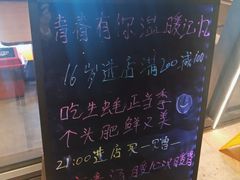 青春有你温暖记忆
16岁进店满200减100
吃生蚝正当季
个头肥鲜又美
21:00进店买一赠一